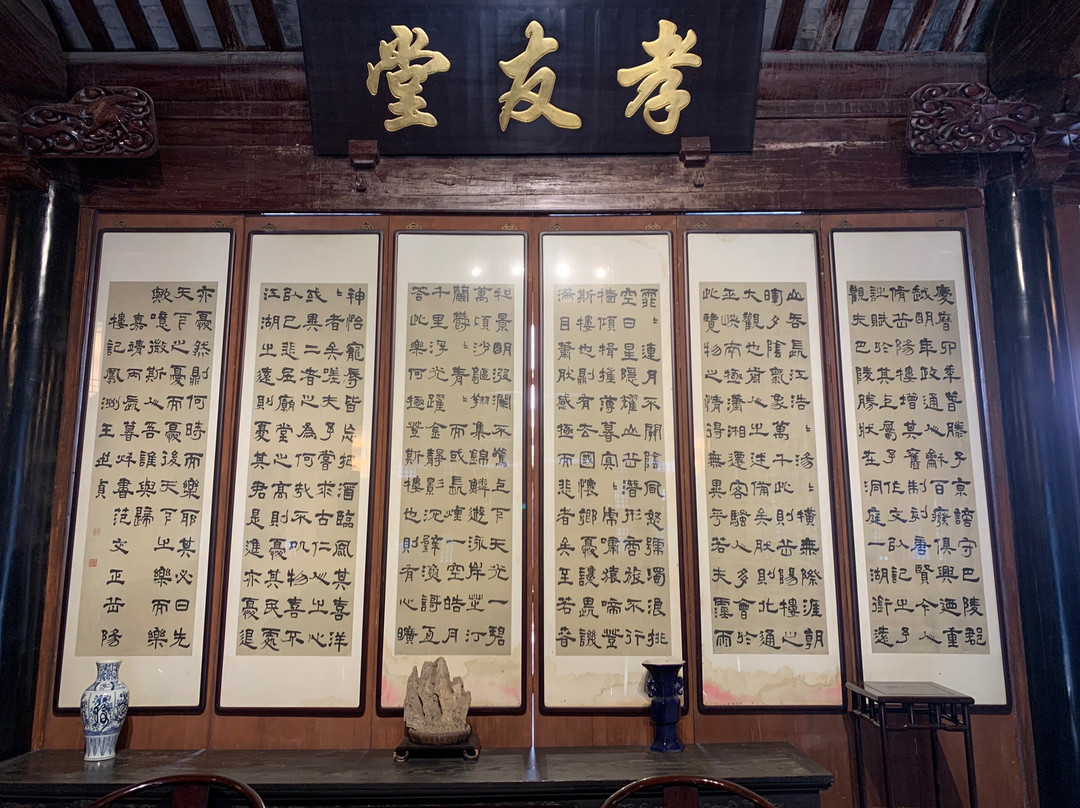 孝友堂
慶曆四年春滕子京謫守巴陵郡
越明年政通人和百廢俱興迺重
脩岳陽樓增其舊制刻唐賢今人
詩賦於其上屬予作文以記之予
觀夫巴陵勝狀在洞庭一湖銜遠
山吞長江浩〻湯〻橫無際涯朝
暉夕陰氣象萬千此則岳陽樓之
大觀也前人之述備矣然則北通
巫峽南極瀟湘遷客騷人多會於
此覽物之情得無異乎若夫霪雨
霏〻連月不開陰風怒號濁浪排
空日星隱耀山岳潛形商旅不行
檣傾楫摧薄暮冥〻虎嘯猿啼登
斯樓也則有去國懷鄉憂讒畏譏
滿目蕭然感極而悲者矣至若春
和景明波瀾不驚上下天光一碧
萬頃沙鷗翔集錦鱗游泳岸芷汀
蘭鬱〻青〻而或長煙一空皓月
千里浮光躍金靜影沉璧漁謌互
答此樂何極登斯樓也則有心曠
神怡寵辱皆忘把酒臨風其喜洋
〻者矣嗟夫予嘗求古仁人之心
或異二者之為何哉不以物喜不
以己悲居廟堂之高則憂其民處
江湖之遠則憂其君是進亦憂退
亦憂然則何時而樂耶其必曰先
天下之憂而憂後天下之樂而樂
歟噫微斯人吾誰與歸
嘉靖丙辰暮秋書范文正岳陽
樓記鳳洲王世貞